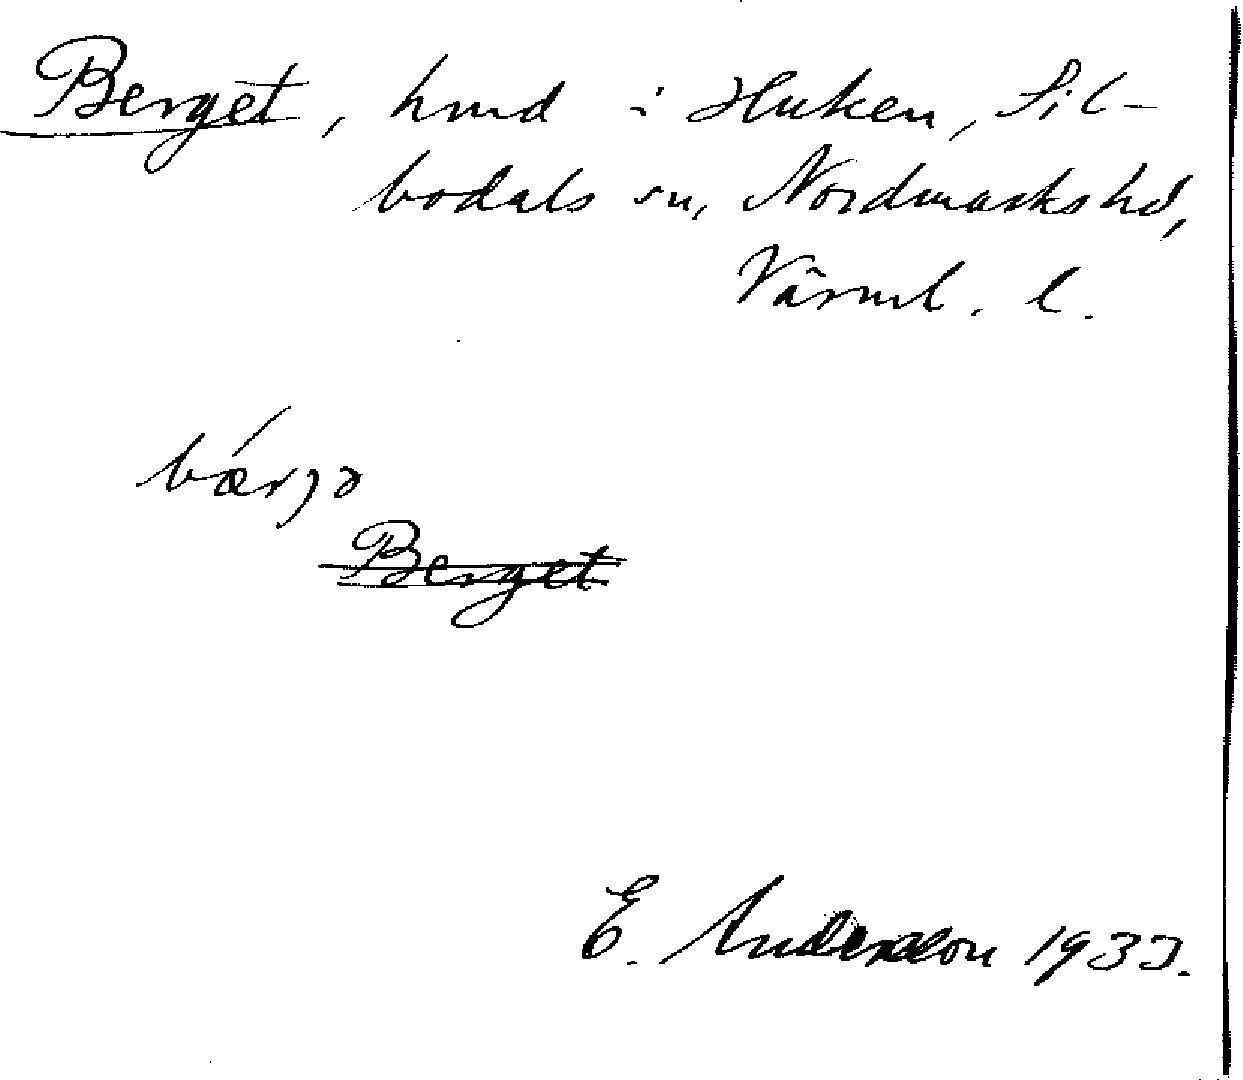 Berget, hmd i Huken, Sil-
bodals sn, Nordmarks hd,
Värml. l.
bǽrjə
Berget
E. Andersson 1933.